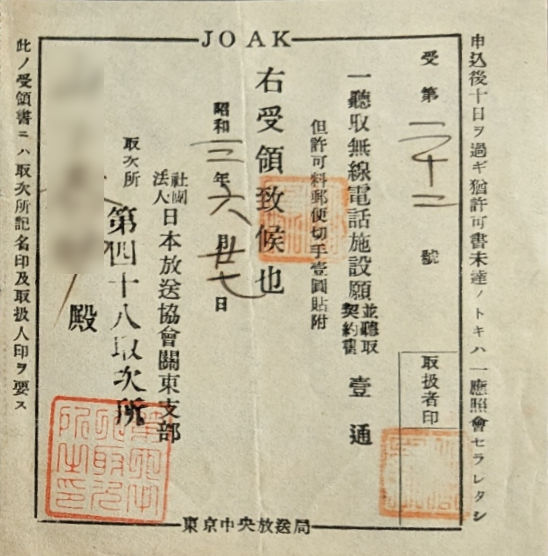 JOAK
申込後十日ヲ過ギ猶許可書未達ノトキハ一應照會セラレタシ
受第二十二號
取扱者印
一聽取無線電話施設願並聽取契約書壹通
但許可料郵便切手壹圓貼附
右受領致候也
昭和三年六月廿七日
社團法人日本放送協會關東支部
取次所第四十八取次所
殿
此ノ受領書ニハ取次所記名印及取扱人印ヲ要ス
東京中央放送局